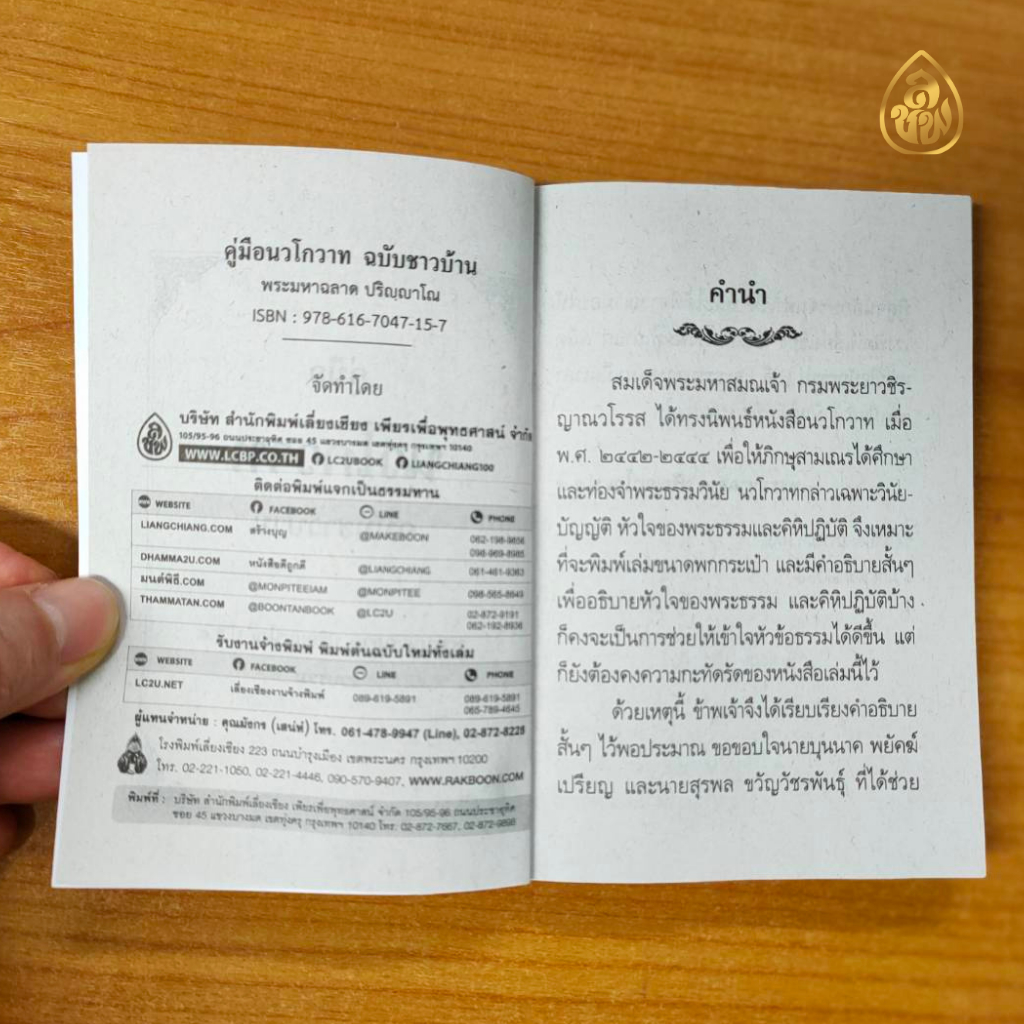 คู่มือนวโกวาท ฉบับชาวบ้าน
พระมหาฉลาด ปริญฺญาโณ
ISBN : 978-616-7047-15-7
จัดทำโดย
บริษัท สำนักพิมพ์เลี่ยงเชียง เพียรเพื่อพุทธศาสน์ จำกัด
105/95-96 ถนนประชาอุทิศ ซอย 45 แขวงบางมด เขตทุ่งครุ กรุงเทพฯ 10140
WWW.LCBP.CO.TH LC2UBOOK LIANGCHIANG100
ติดต่อพิมพ์แจกเป็นธรรมทาน
WEBSITE FACEBOOK LINE PHONE
LIANGCHIANG.COM สร้างบุญ @MAKEBOON 062-198-9856
098-969-8985
DHAMMA2U.COM หนังสือดีถูกดี @LIANGCHIANG 061-461-9363
มนต์พิธี.COM @MONPITEEIAM @MONPITEE 098-565-8649
THAMMATAN.COM @BOONTANBOOK @LC2U 02-872-9191
062-192-8936
รับงานจ้างพิมพ์ พิมพ์ต้นฉบับใหม่ทั้งเล่ม
WEBSITE FACEBOOK LINE PHONE
LC2U.NET เลี่ยงเชียงงานจ้างพิมพ์ 089-619-5891 089-619-5891
065-789-4645
ผู้แทนจำหน่าย : คุณมังกร (เสน่ห์) โทร. 061-478-9947 (Line), 02-872-8228
โรงพิมพ์เลี่ยงเชียง 223 ถนนบำรุงเมือง เขตพระนคร กรุงเทพฯ 10200
โทร. 02-221-1050, 02-221-4446, 090-570-9407, WWW.RAKBOON.COM
พิมพ์ที่ : บริษัท สำนักพิมพ์เลี่ยงเชียง เพียรเพื่อพุทธศาสน์ จำกัด 105/95-96 ถนนประชาอุทิศ
ซอย 45 แขวงบางมด เขตทุ่งครุ กรุงเทพฯ 10140 โทร. 02-872-7667, 02-872-9898
คำนำ
สมเด็จพระมหาสมณเจ้า กรมพระยาวชิร-
ญาณวโรรส ได้ทรงนิพนธ์หนังสือนวโกวาท เมื่อ
พ.ศ. ๒๔๔๒-๒๔๔๔ เพื่อให้ภิกษุสามเณรได้ศึกษา
และท่องจำพระธรรมวินัย นวโกวาทกล่าวเฉพาะวินัย-
บัญญัติ หัวใจของพระธรรมและคิหิปฏิบัติ จึงเหมาะ
ที่จะพิมพ์เล่มขนาดพกกระเป๋า และมีคำอธิบายสั้นๆ
เพื่ออธิบายหัวใจของพระธรรม และคิหิปฏิบัติบ้าง
ก็คงจะเป็นการช่วยให้เข้าใจหัวข้อธรรมได้ดีขึ้น แต่
ก็ยังต้องคงความกะทัดรัดของหนังสือเล่มนี้ไว้
ด้วยเหตุนี้ ข้าพเจ้าจึงได้เรียบเรียงคำอธิบาย
สั้นๆ ไว้พอประมาณ ขอขอบใจนายบุนนาค พยัคฆ์
เปรียญ และนายสุรพล ขวัญวัชรพันธุ์ ที่ได้ช่วย